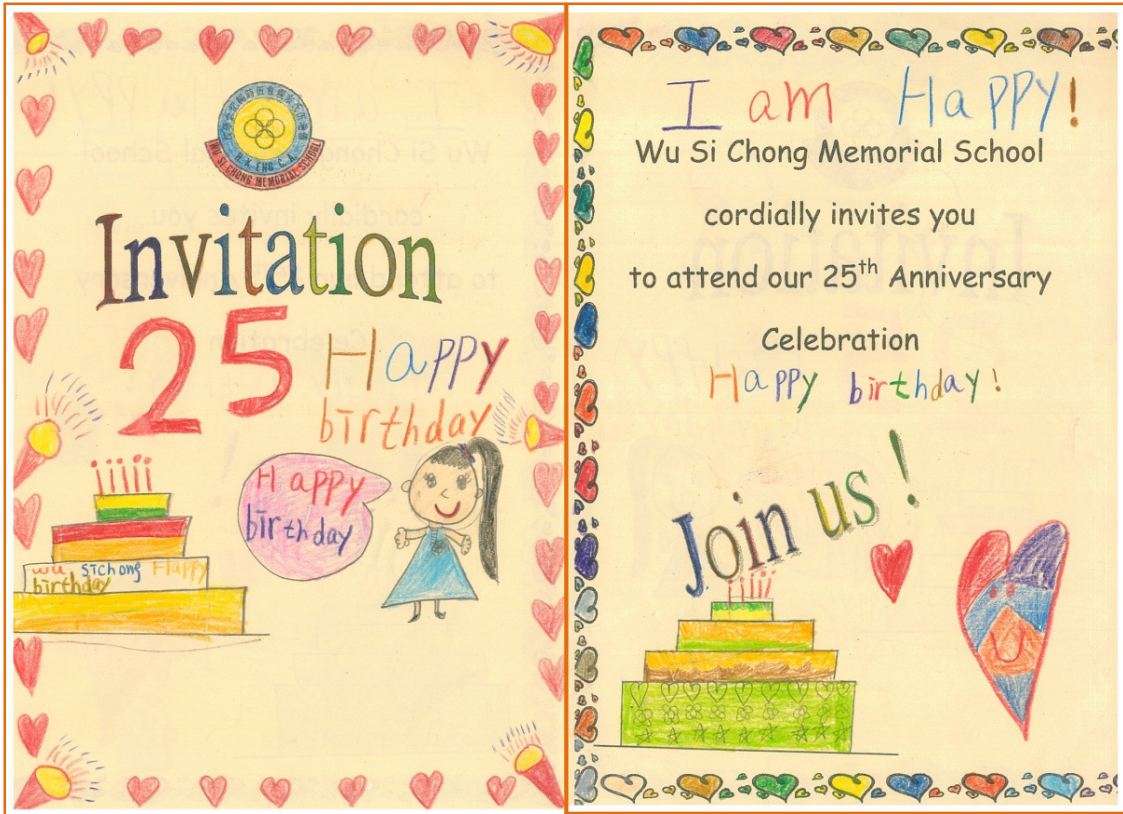 ENG C. A.
WU SI CHONG MEMORIAL SCHOOL
Invitation
25
Happy
birthday
Happy
birthday
wu sichong Happy
birthday
I am Happy!
Wu Si Chong Memorial School
cordially invites you
to attend our 25th Anniversary
Celebration
Happy birthday!
Join us!